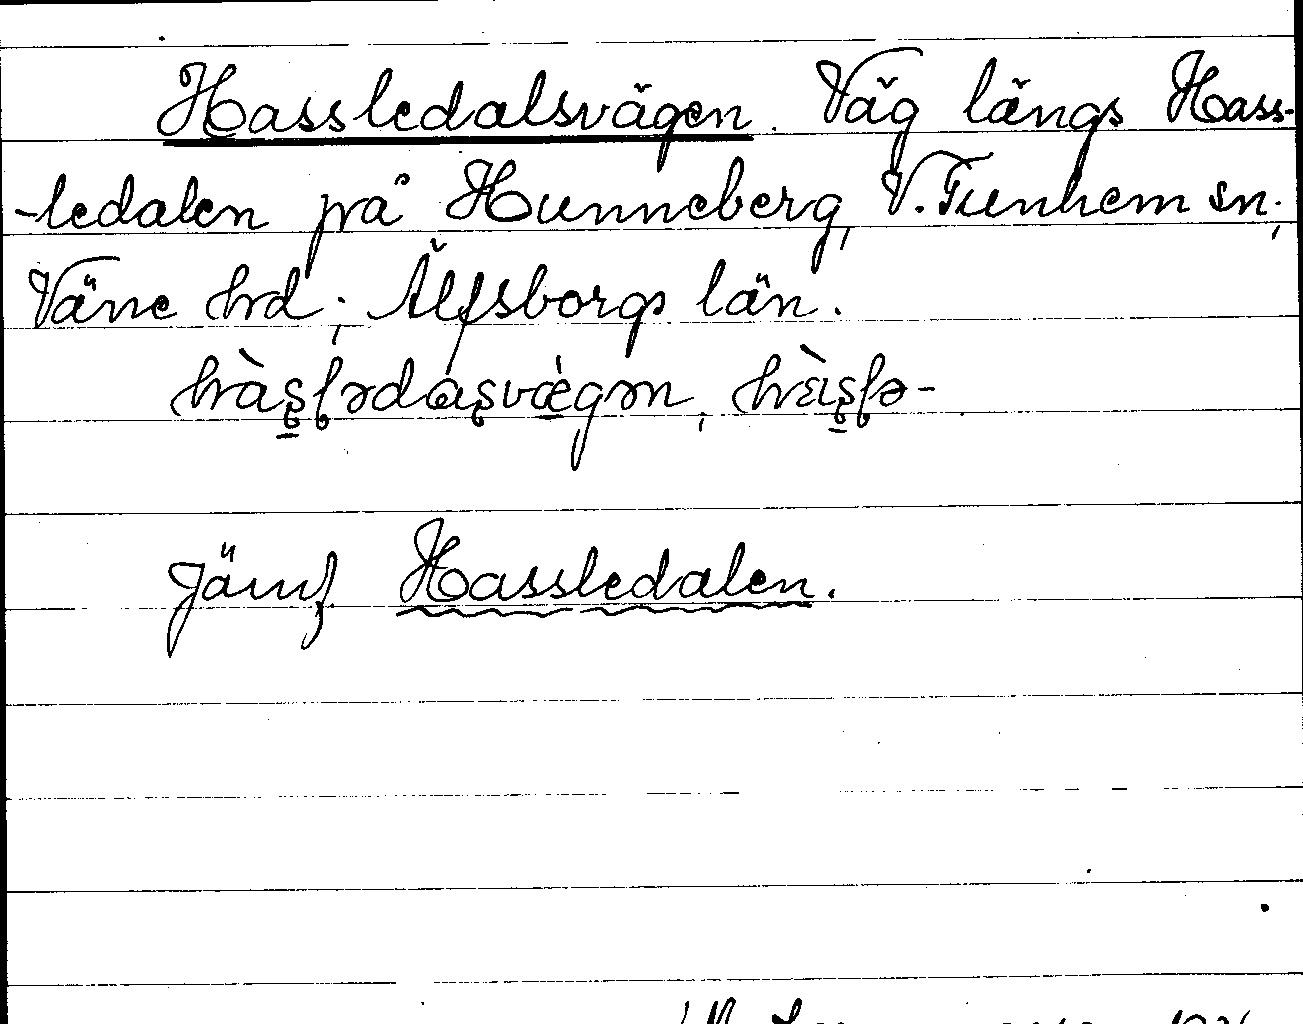 Hassledalsvägen. Väg längs Hass-
-ledalen på Hunneberg, V. Tunhem sn.,
Väne hrd., Älfsborgs län.
Jämf Hassledalen.